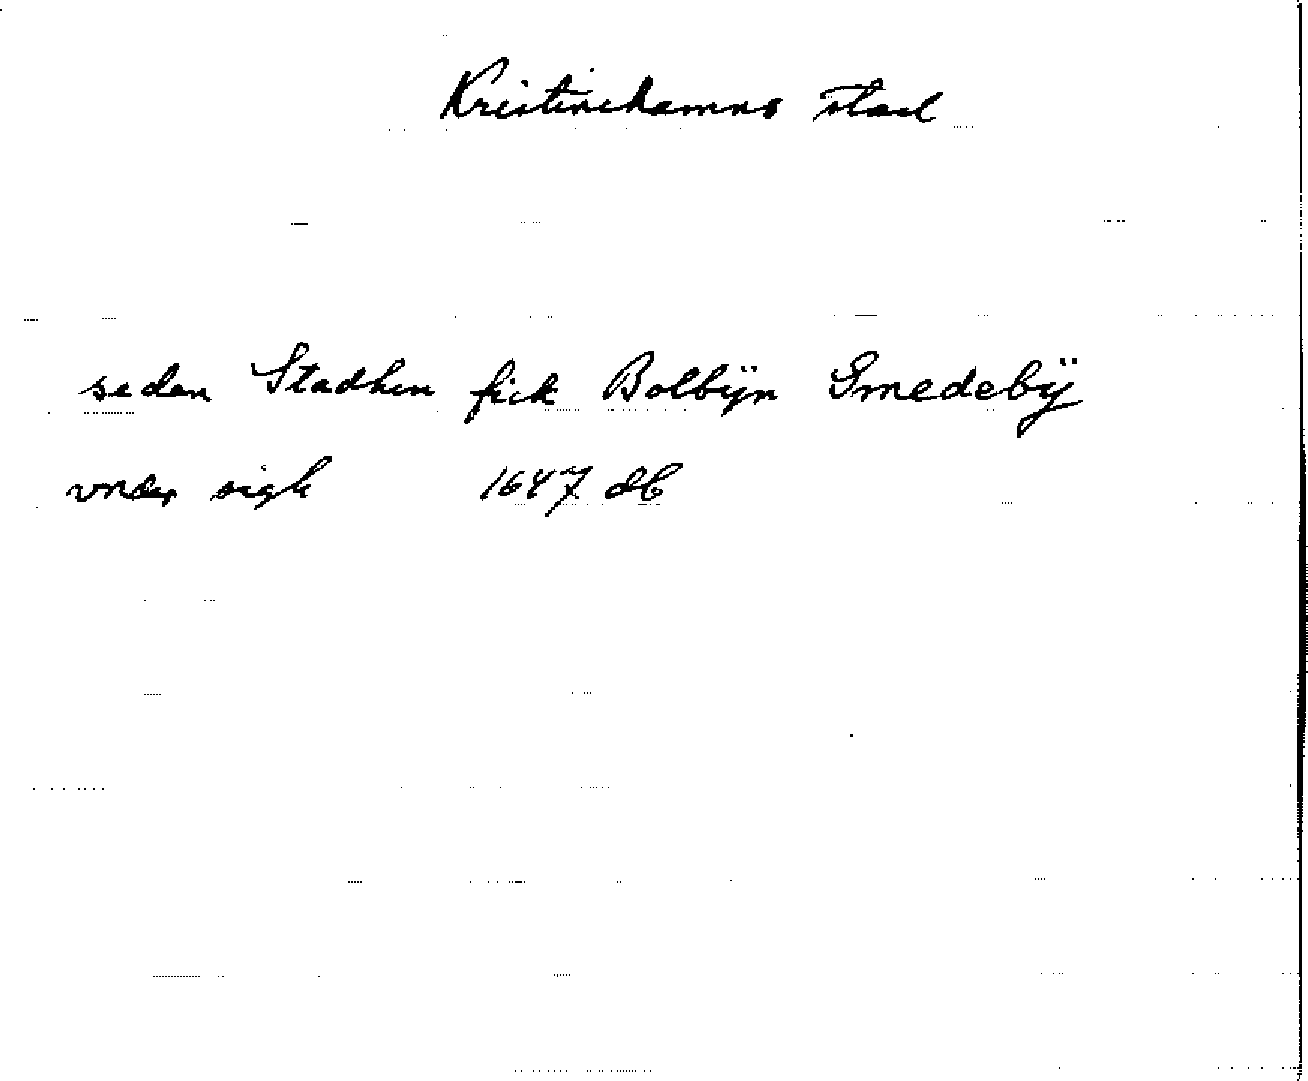 Kristinehamns stad
sedan Stadhen fick Bolbÿn Smedebÿ
vnder sigh 1647 db